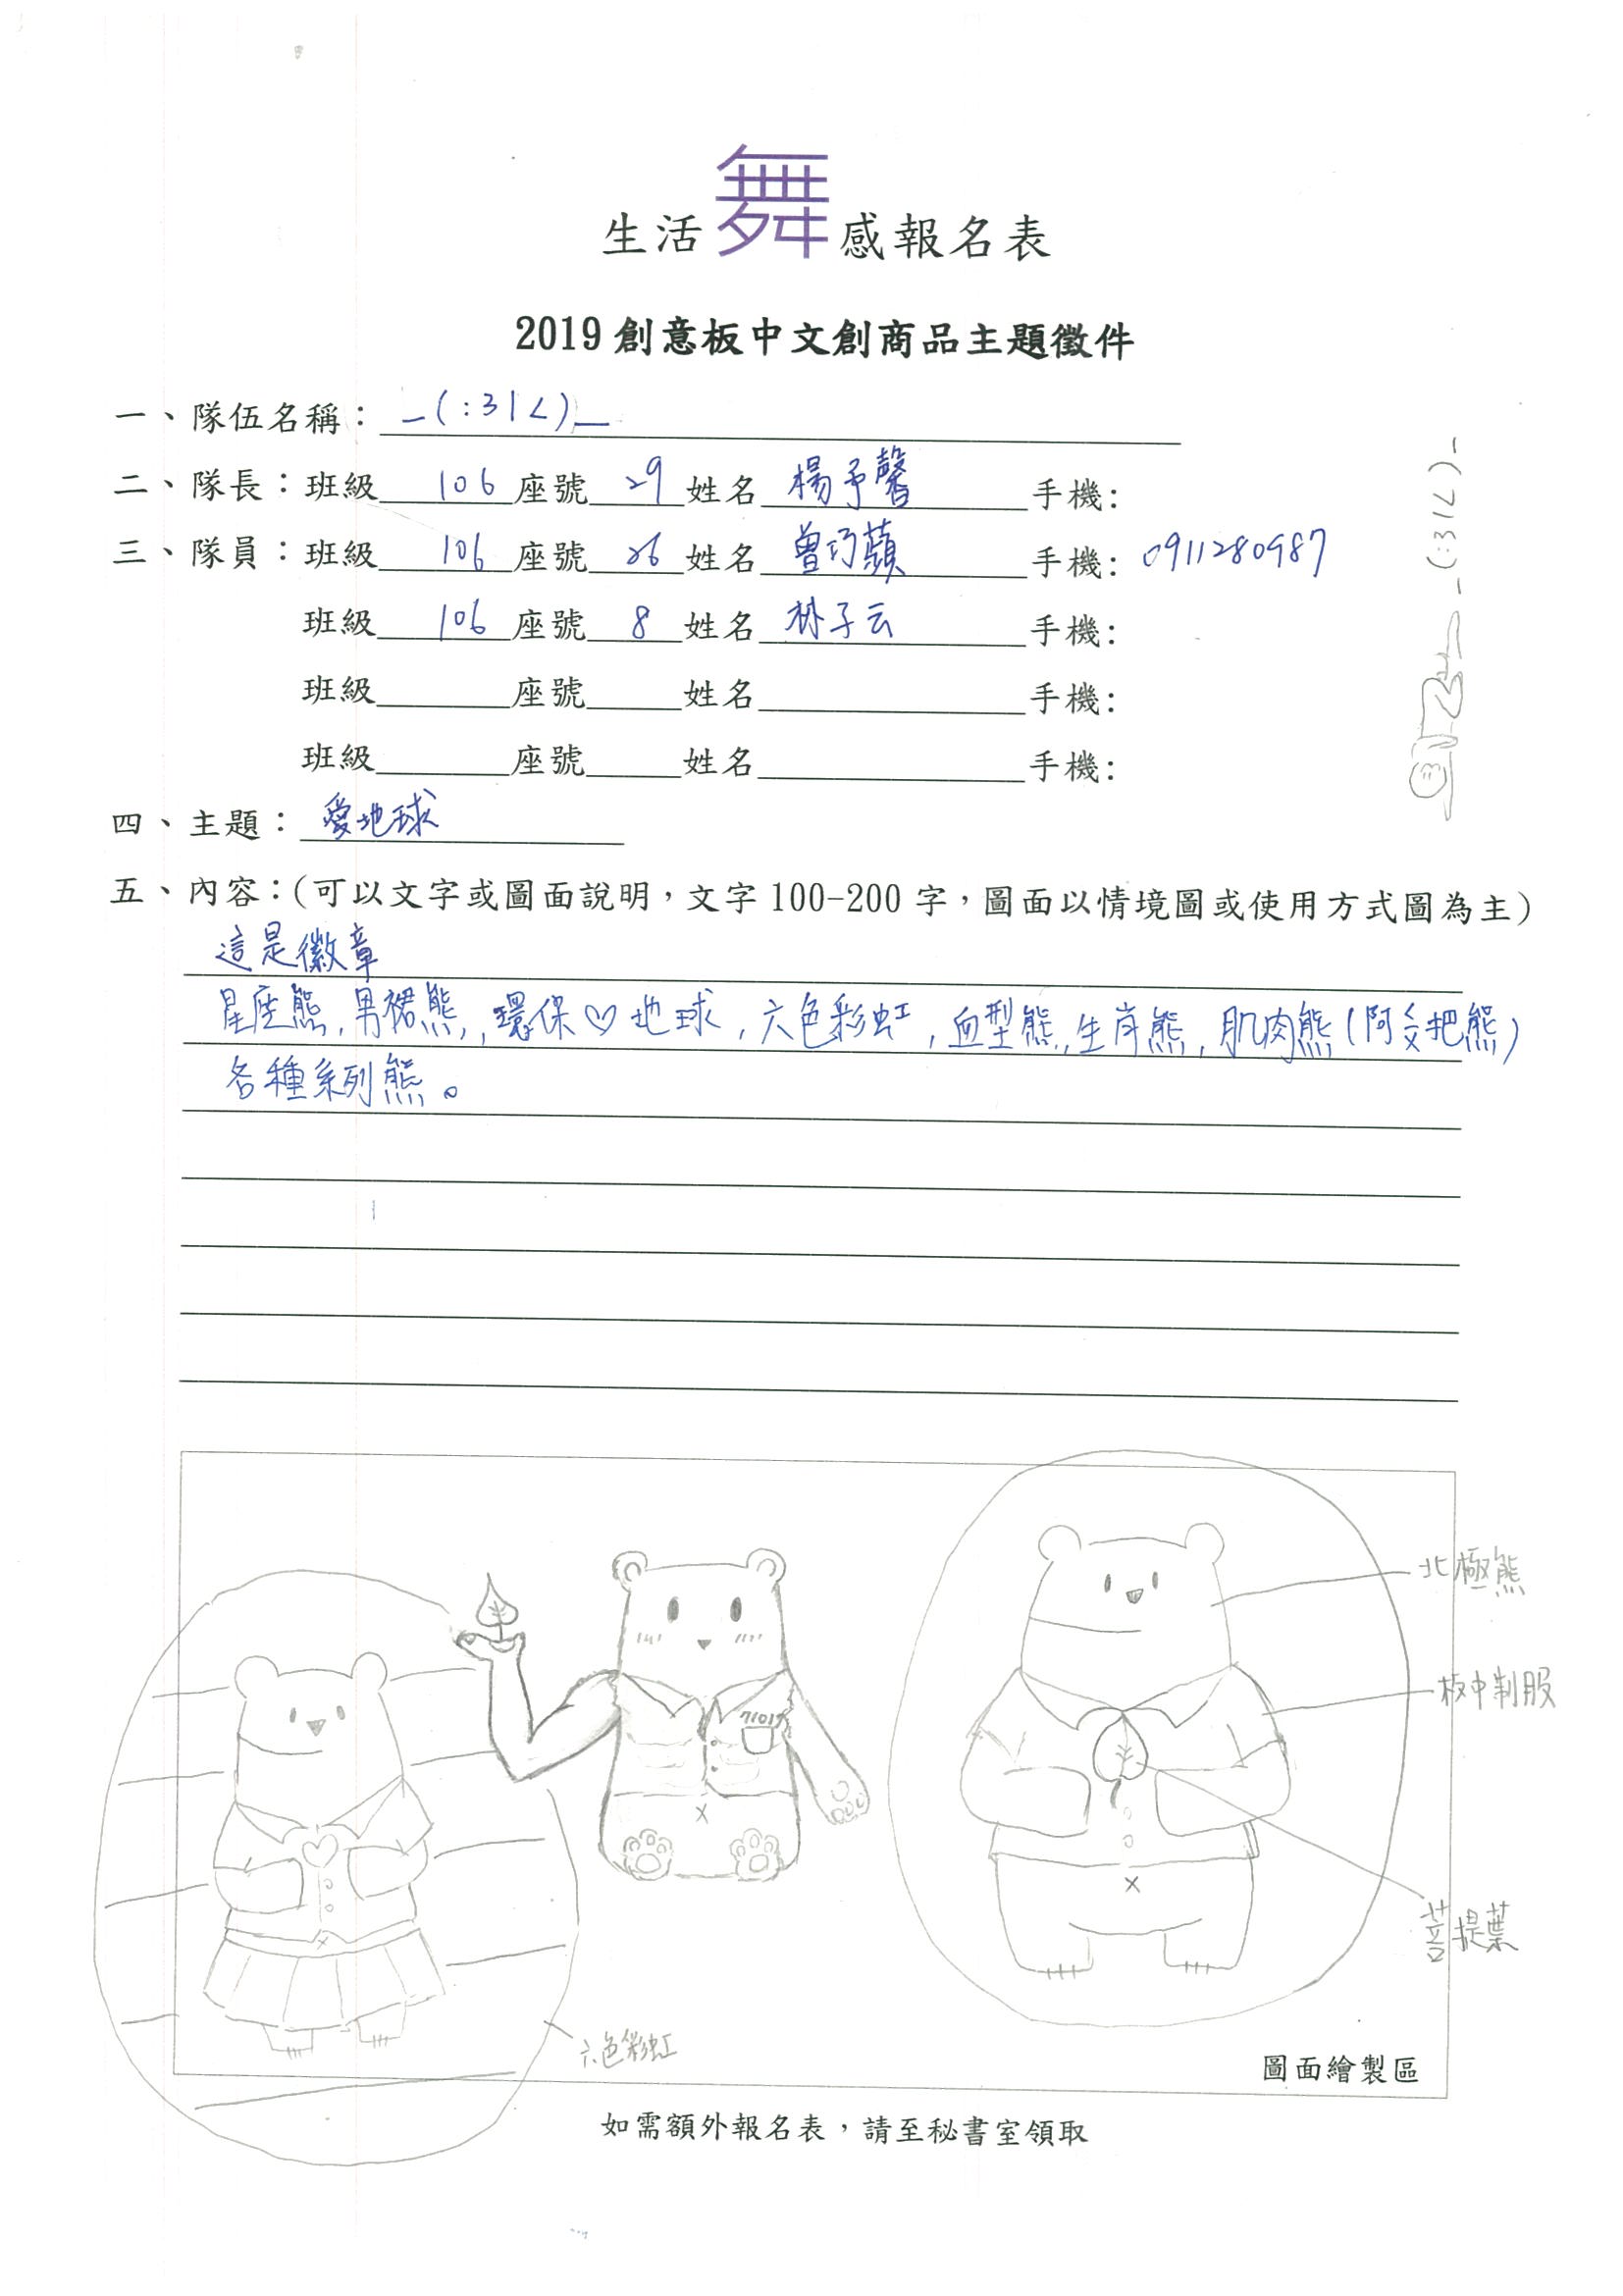 生活舞感報名表
2019創意板中文創商品主題徵件
一、隊伍名稱：_(:31<)_
二、隊長：班級 106 座號 29 姓名 楊予馨 手機:
三、隊員：班級 106 座號 26 姓名 曾巧蘋 手機: 0911280987
班級 106 座號 8 姓名 林子云 手機:
班級 座號 姓名 手機:
班級 座號 姓名 手機:
_(:31L)_
四、主題：愛地球
五、內容：(可以文字或圖面說明，文字100-200字，圖面以情境圖或使用方式圖為主)
這是徽章
星座熊,男裙熊,環保♡地球,六色彩虹,血型熊,生肖熊,肌肉熊(阿爸把熊)
各種系列熊。
北極熊
板中制服
71017
菩提葉
六色彩虹
圖面繪製區
如需額外報名表，請至秘書室領取